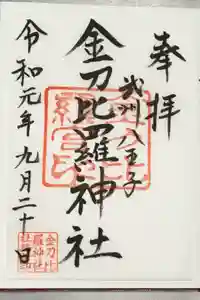 奉拝
武州八王子
金刀比羅神社
令和元年九月二十日
金刀比
羅神社